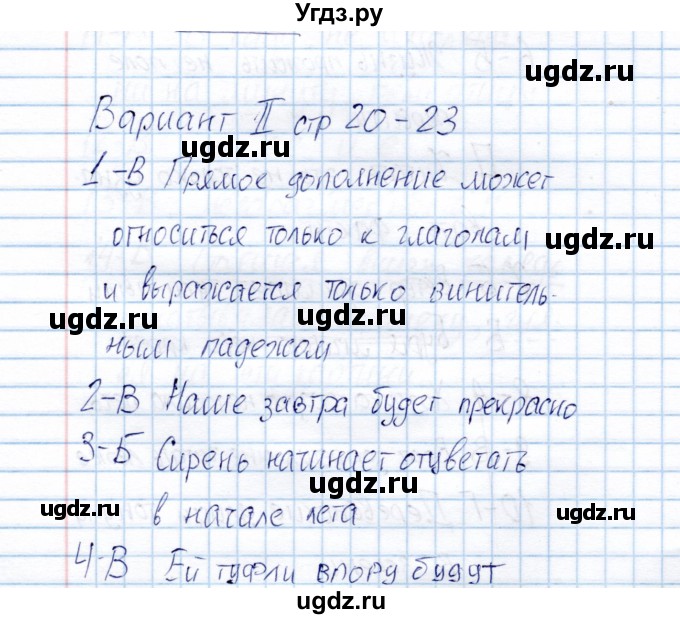 Угдз.ру
ugdz.ru
Вариант II стр 20-23
ugdz.ru
1-В Прямое дополнение может
относиться только к глаголам
ugdz.ru
и выражается только винитель-
ugdz.ru ugdz.ru
ным падежом
2-В Наше завтра будет прекрасно
3-Б Сирень начинает отцветать
ugdz.ru
в начале лета
ugdz.ru ugdz.ru
4-В Ей туфли впору будут
ugdz.ru